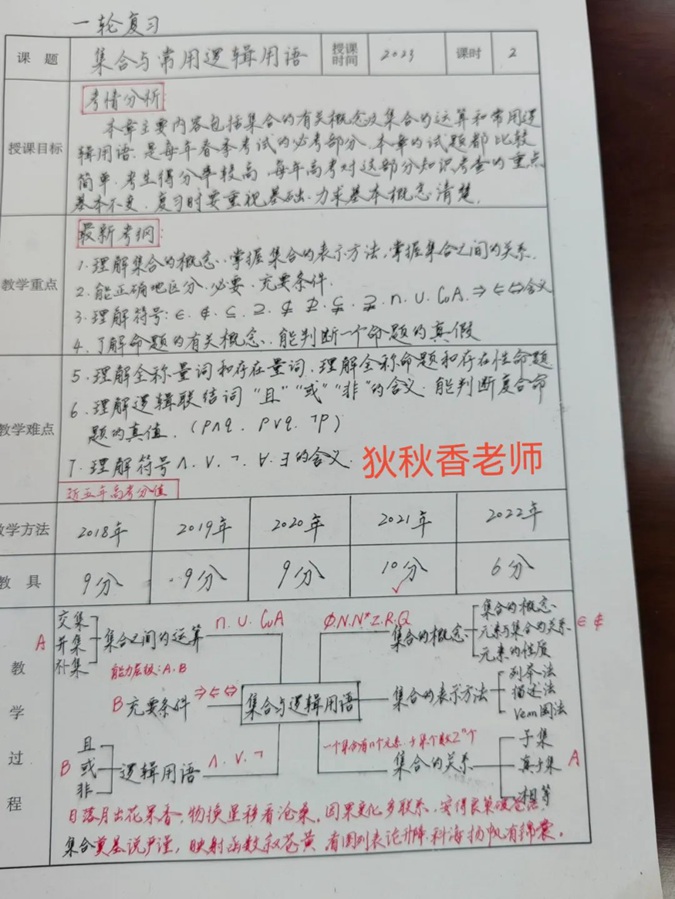 一轮复习
课 题 集合与常用逻辑用语 授课时间 2023 课时 2
授课目标
考情分析:
本章主要内容包括集合的有关概念及集合的运算和常用逻
辑用语.是每年春季考试的必考部分.本章的试题都比较
简单.考生得分率较高.每年高考对这部分知识考查的重点
基本不变.复习时要重视基础.力求基本概念清楚.
教学重点
最新考纲:
1.理解集合的概念.掌握集合的表示方法,掌握集合之间的关系.
2.能正确地区分.必要.充要条件.
3.理解符号:∈.∉.⊆.⊇.⊈.⊉.⊊.⊋.∩.∪.∁uA.⇒⇐⇔含义
4.了解命题的有关概念.能判断一个命题的真假
教学难点
5.理解全称量词和存在量词.理解全称命题和存在性命题
6.理解逻辑联结词“且”“或”“非”的含义.能判断复合命
题的真值.(p∧q. p∨q. ¬p)
7.理解符号∧.∨.¬.∀.∃的含义.
狄秋香老师
近五年高考分值
教学方法 2018年 2019年 2020年 2021年 2022年
教 具 9分 9分 9分 10分 6分
教学过程
A 交集 并集 补集 集合之间的运算 ∩.∪.∁uA
能力层级:A.B
B 充要条件 ⇒⇐⇔
B 且 或 非 逻辑用语 ∧.∨.¬
集合与逻辑用语
∅.N.N*.Z.R.Q 集合的概念 集合的概念 元素与集合的关系 ∈∉ 元素的性质
集合的表示方法 列举法 描述法 Venn图法
一个集合有n个元素.子集个数2ⁿ个
集合的关系 子集 真子集 相等 A
日落月出花果香.物换星移看沧桑.因果变化多联系.安得良策
集合奠基说严谨,映射函数叙苍黄.看图列表论升降.科海扬帆有锦囊.